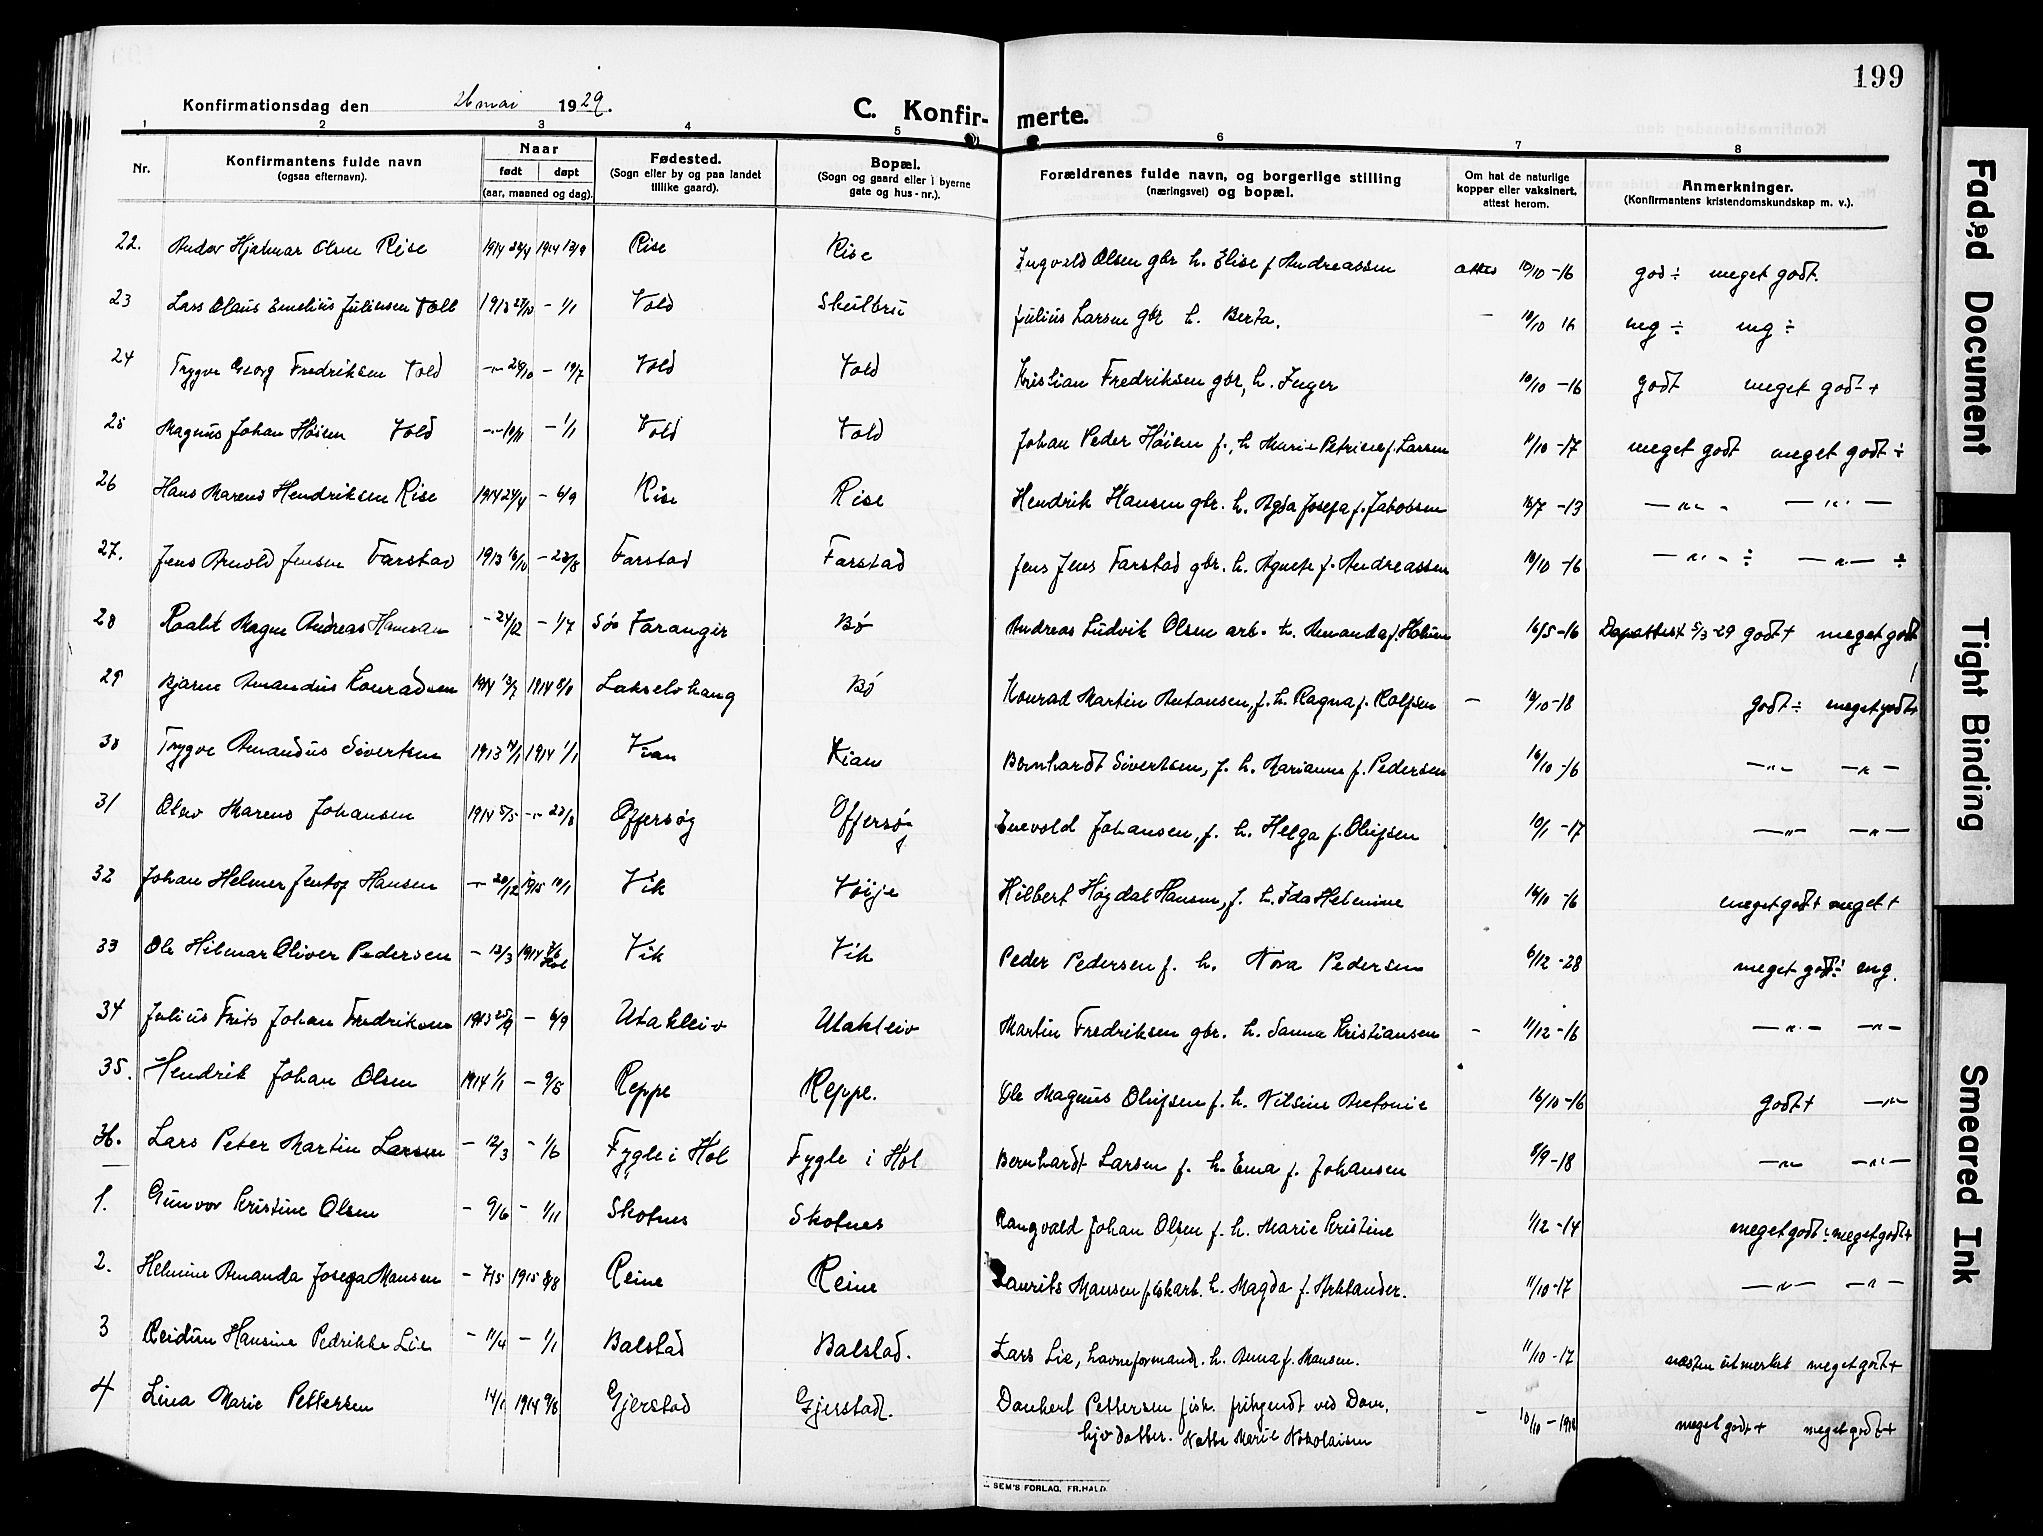 199
Konfirmationsdag den 26 mai 1929.
C. Konfirmerte.
1 2 3 4 5 6 7 8
Nr.
Konfirmantens fulde navn
(ogsaa efternavn).
Naar
født døpt
(aar, maaned og dag).
Fødested.
(Sogn eller by og paa landet
tillike gaard).
Bopæl.
(Sogn og gaard eller i byerne
gate og hus-nr.).
Forældrenes fulde navn, og borgerlige stilling
(næringsvei) og bopæl.
Om hat de naturlige
kopper eller vaksinert.
attest herom.
Anmerkninger.
(Konfirmantens kristendomskundskap m. v.).
22. Hjalmar Olsen Rise 1914 1914 Rise Rise Ingvald Olsen gbr h. Elise f Andreassen 10/10 -16 god ÷ meget godt.
23 Lars Olaus Emelius Juliussen Vold 1913 27/10 - 1/1 Vold Julius Larsen gbr h. Berta. - 10/10 16 mg ÷ mg ÷
24 Trygve Georg Fredriksen Vold - - 19/7 Vold Vold Kristian Fredriksen gbr, h. Inger 10/10 -16 godt meget godt +
25 Magnus Johan Høien Vold - 10/11 - 1/1 Vold Vold Johan Peder Høien f., h Marie Petrine f. Larsen 11/10 -17 meget godt meget godt ÷
26 Hans Marens Hendriksen Rise 1914 24/4 - 6/9 Rise Rise Hendrik Hansen gbr. h. Agda Josefa f. Jakobsen -13 — " - — " —
27. Jens Arnold Jensen Farstad 1913 - Farstad Farstad Jens Jens Farstad gbr. h. Agnete f. Andreassen 10/10 -16 — " - ÷ — " — ÷
28 Roald Magne Andreas - 24/12 - 1/7 Sør Varanger Bø Andreas Ludvik Olsen arb. h. Amanda f. 16/5 -16 Dåpattest 5/3 -29 godt + meget godt
29 Bjarne Amandus Konradsen 1914 13/7 1914 Bø Konrad Martin Antonsen, f. h. Ragna f. Rolfsen - 10/10 -18 godt ÷ meget godt +
30 Trygve Amandus Sivertsen 1913 1914 1/1 Bernhardt Sivertsen, f. h. Marianne f. Pedersen 16/10 -16 — " — — " —
31 Olav Marens Johansen 1914 5/5 - Offersøy Offersøy Enevold Johansen, f. h. Helga f. Olufsen 10/1 -17 — " — — " —
32 Johan Helmer Jentof Hansen - 20/12 1915 10/1 Vik Vøije Hilbert Høgdal Hansen, f. h. Ida Helmine -16 meget godt + meget +
33 Ole Hilmar Oliver Pedersen - 13/3 1914 Hol Vik Vik Peder Pedersen f. h. Nora Pedersen 6/12 -28 meget godt ÷ mg.
34 Julius Frits Johan Fredriksen 1913 25/9 - 6/9 Utakleiv Utakleiv Martin Fredriksen gbr. h. Sanna Kristiansen - 11/12 -16 — " — — " —
35. Hendrik Johan Olsen 1914 1/1 - Reppe Reppe. Ole Magnus Olufsen f. h. Nilsine Antonie 16/10 -16 godt + — " —
36. Lars Peter Martin Larsen - 12/3 - 1/6 Fygle i Hol Fygle i Hol Bernhardt Larsen f. h. Ema f. Johansen 8/9 -18 — " — — " —
1. Gunvor Kristine Olsen - 9/6 - 1/11 Skotnes Skotnes Rangvald Johan Olsen f. h. Marie Kristine 1/12 -14 meget godt ÷ meget godt +
2. Helmine Amanda Josefa Hansen - 7/5 1915 Reine Reine Laurits Hansen fiskarb. h. Magda f. Arktander. 11/10 -17 — " — — " —
3 Reidun Hansine Pedrikke Lie - 11/4 - 1/1 Balstad Balstad. Lars Lie, havneformand. h. Anna f. Hansen. 11/10 -17 næsten utmerket meget godt +
4 Lina Marie Pettersen 14/1 1914 Gjerstad Gjerstad. Dankert Pettersen fisk. frikjendt ved Dom,
hjv datter. Marie Nikolaisen - 10/10 - 1918 meget godt + meget godt +
SEM'S FORLAG. FR.HALD.
Faded Document
Tight Binding
Smeared Ink